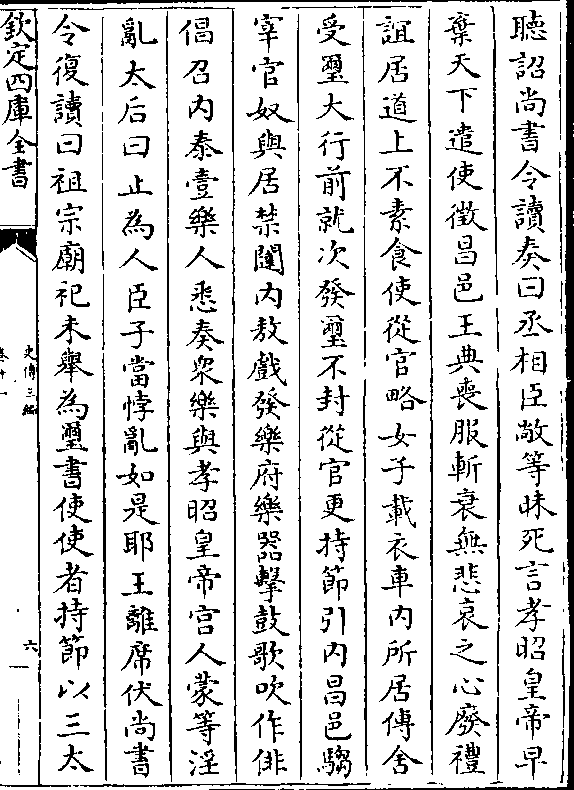 聽詔尚書令讀奏曰丞相臣敞等昧死言孝昭皇帝早
棄天下遣使徵昌邑王典喪服斬衰無悲哀之心廢禮
誼居道上不素食使從官略女子載衣車内所居傳舍
受璽大行前就次發璽不封從官更持節引内昌邑騶
宰官奴與居禁闥内敖戲發樂府樂器擊鼓歌吹作俳
倡召内泰壹樂人悉奏衆樂與孝昭皇帝宫人蒙等淫
亂太后曰止為人臣子當悖亂如是耶王離席伏尚書
令復讀曰祖宗廟祀未舉為璽書使使者持節以三太
欽定四庫全書
史傳三編
卷十一
六